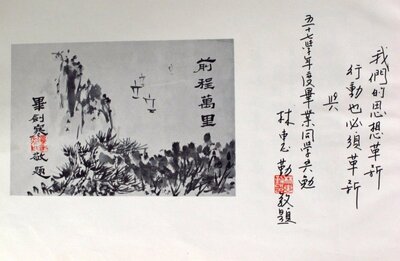 我們的思想革新
行動也必須革新
與
五十七學年度畢業同學共勉
林 勤敬題
前程萬里
畢劍寒敬題